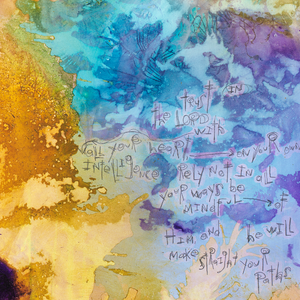 trust in
the LORD
with
all your heart on your own
intelligence rely not in all
your ways be
mindful of
Him and he will
make straight your
paths